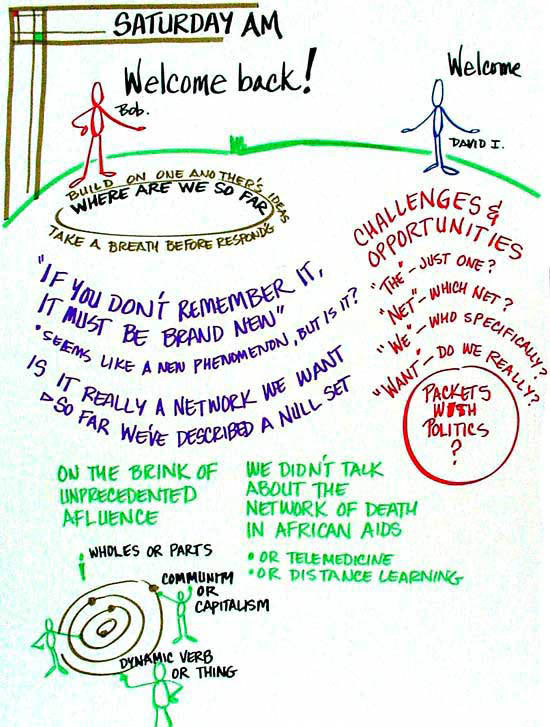 SATURDAY AM
Welcome back!
Bob.
Welcome
DAVID I.
BUILD ON ONE ANOTHER'S IDEAS
WHERE ARE WE SO FAR
TAKE A BREATH BEFORE RESPONDG
"IF YOU DON'T REMEMBER IT,
IT MUST BE BRAND NEW"
• SEEMS LIKE A NEW PHENOMENON, BUT IS IT?
IS IT REALLY A NETWORK WE WANT
▷ SO FAR WE'VE DESCRIBED A NULL SET
CHALLENGES &
OPPORTUNITIES
"THE" - JUST ONE?
"NET" - WHICH NET?
"WE" - WHO SPECIFICALLY?
"WANT" - DO WE REALLY?
PACKETS
WITH
POLITICS
?
ON THE BRINK OF
UNPRECEDENTED
AFLUENCE
WE DIDN'T TALK
ABOUT THE
NETWORK OF DEATH
IN AFRICAN AIDS
• OR TELEMEDICINE
• OR DISTANCE LEARNING
WHOLES OR PARTS
COMMUNITY
OR
CAPITALISM
DYNAMIC VERB
OR THING